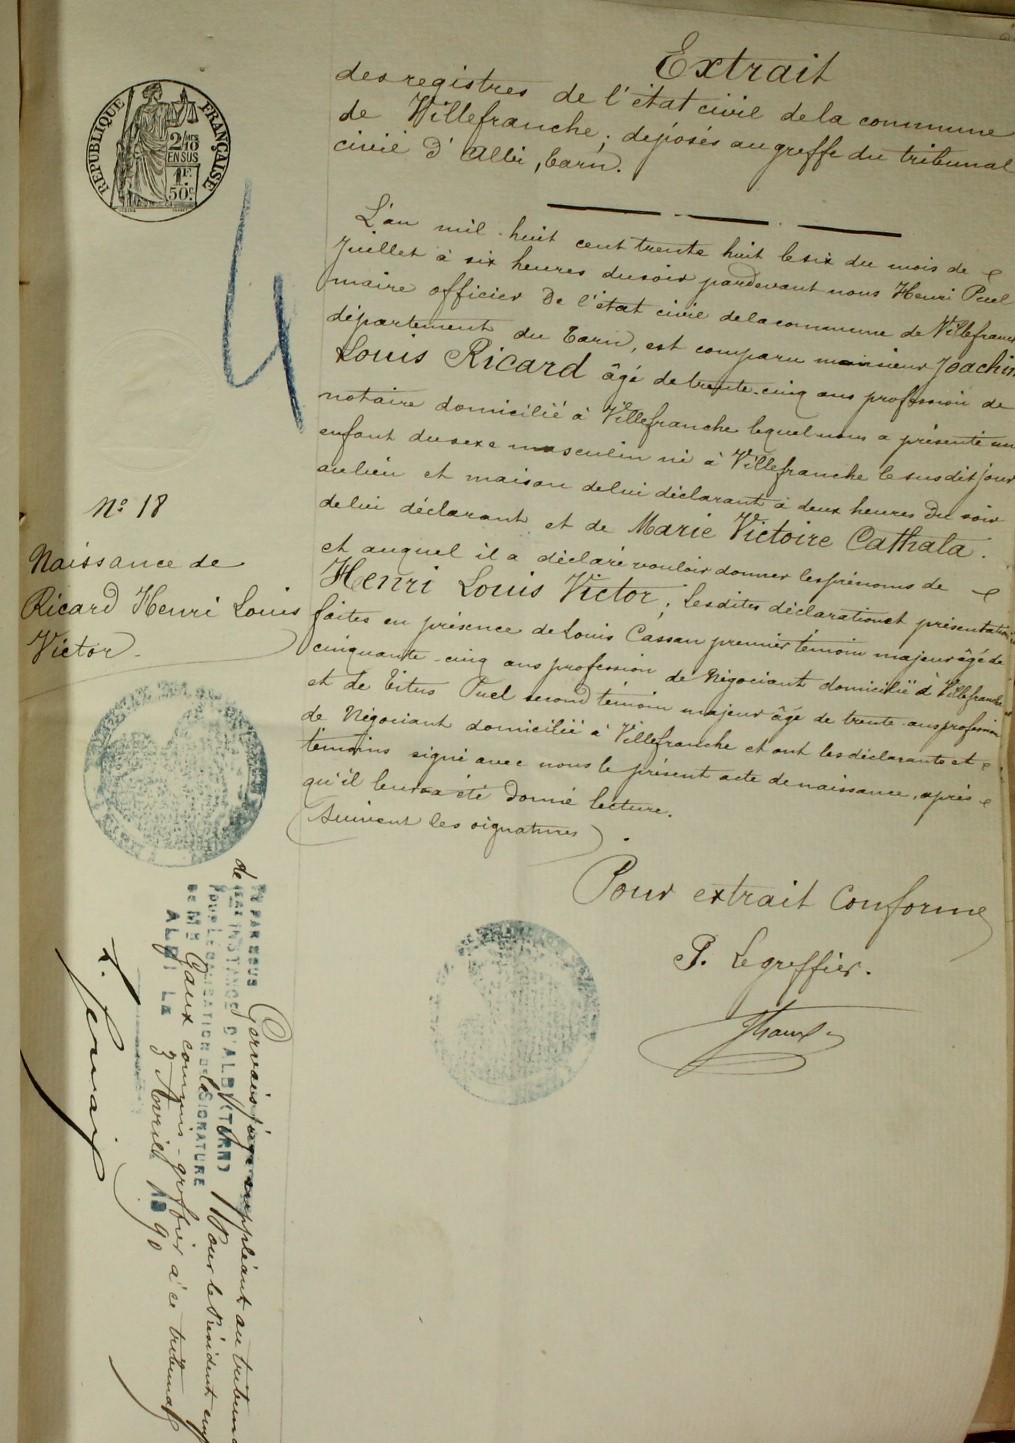 Extrait
des registres de l'état civil de la commune
de Villefranche; déposés au greffe du tribunal
civil d'Albi, Tarn.
RÉPUBLIQUE FRANÇAISE
2/10 EN SUS
1F 50c
L'an mil huit cent trente huit le six du mois de
Juillet à six heures du soir pardevant nous Henri Puel
maire officier de l'état civil de la commune de Villefranche
département du Tarn, est comparu monsieur Joachim
Louis Ricard âgé de trente-cinq ans profession de
notaire domicilié à Villefranche lequel nous a présenté un
enfant du sexe masculin né à Villefranche le susdit jour
au lieu et maison de lui déclarant à deux heures du soir
de lui déclarant et de Marie Victoire Cathala.
et auquel il a déclaré vouloir donner les prénoms de
Henri Louis Victor; Lesdites déclaration et présentation
faites en présence de Louis Cassan premier témoin majeur âgé de
cinquante-cinq ans profession de Négociant domicilié à Villefranche
et de Titus Puel second témoin majeur âgé de trente ans profession
de Négociant domicilié à Villefranche et ont les déclarants et
témoins signé avec nous le présent acte de naissance, après
qu'il leur a été donné lecture.
(Suivent les signatures).
Pour extrait conforme
P. Le greffier.
N° 18
Naissance de
Ricard Henri Louis
Victor
4
VU PAR NOUS Gervais juge suppléant au tribunal
de 1ERE INSTANCE D'ALBI (TARN) Pour le Président emp
POUR LEGALISATION DE LA SIGNATURE
DE MR Gaux commis-greffier à ce tribunal
ALBI LE 3 Avril 1890